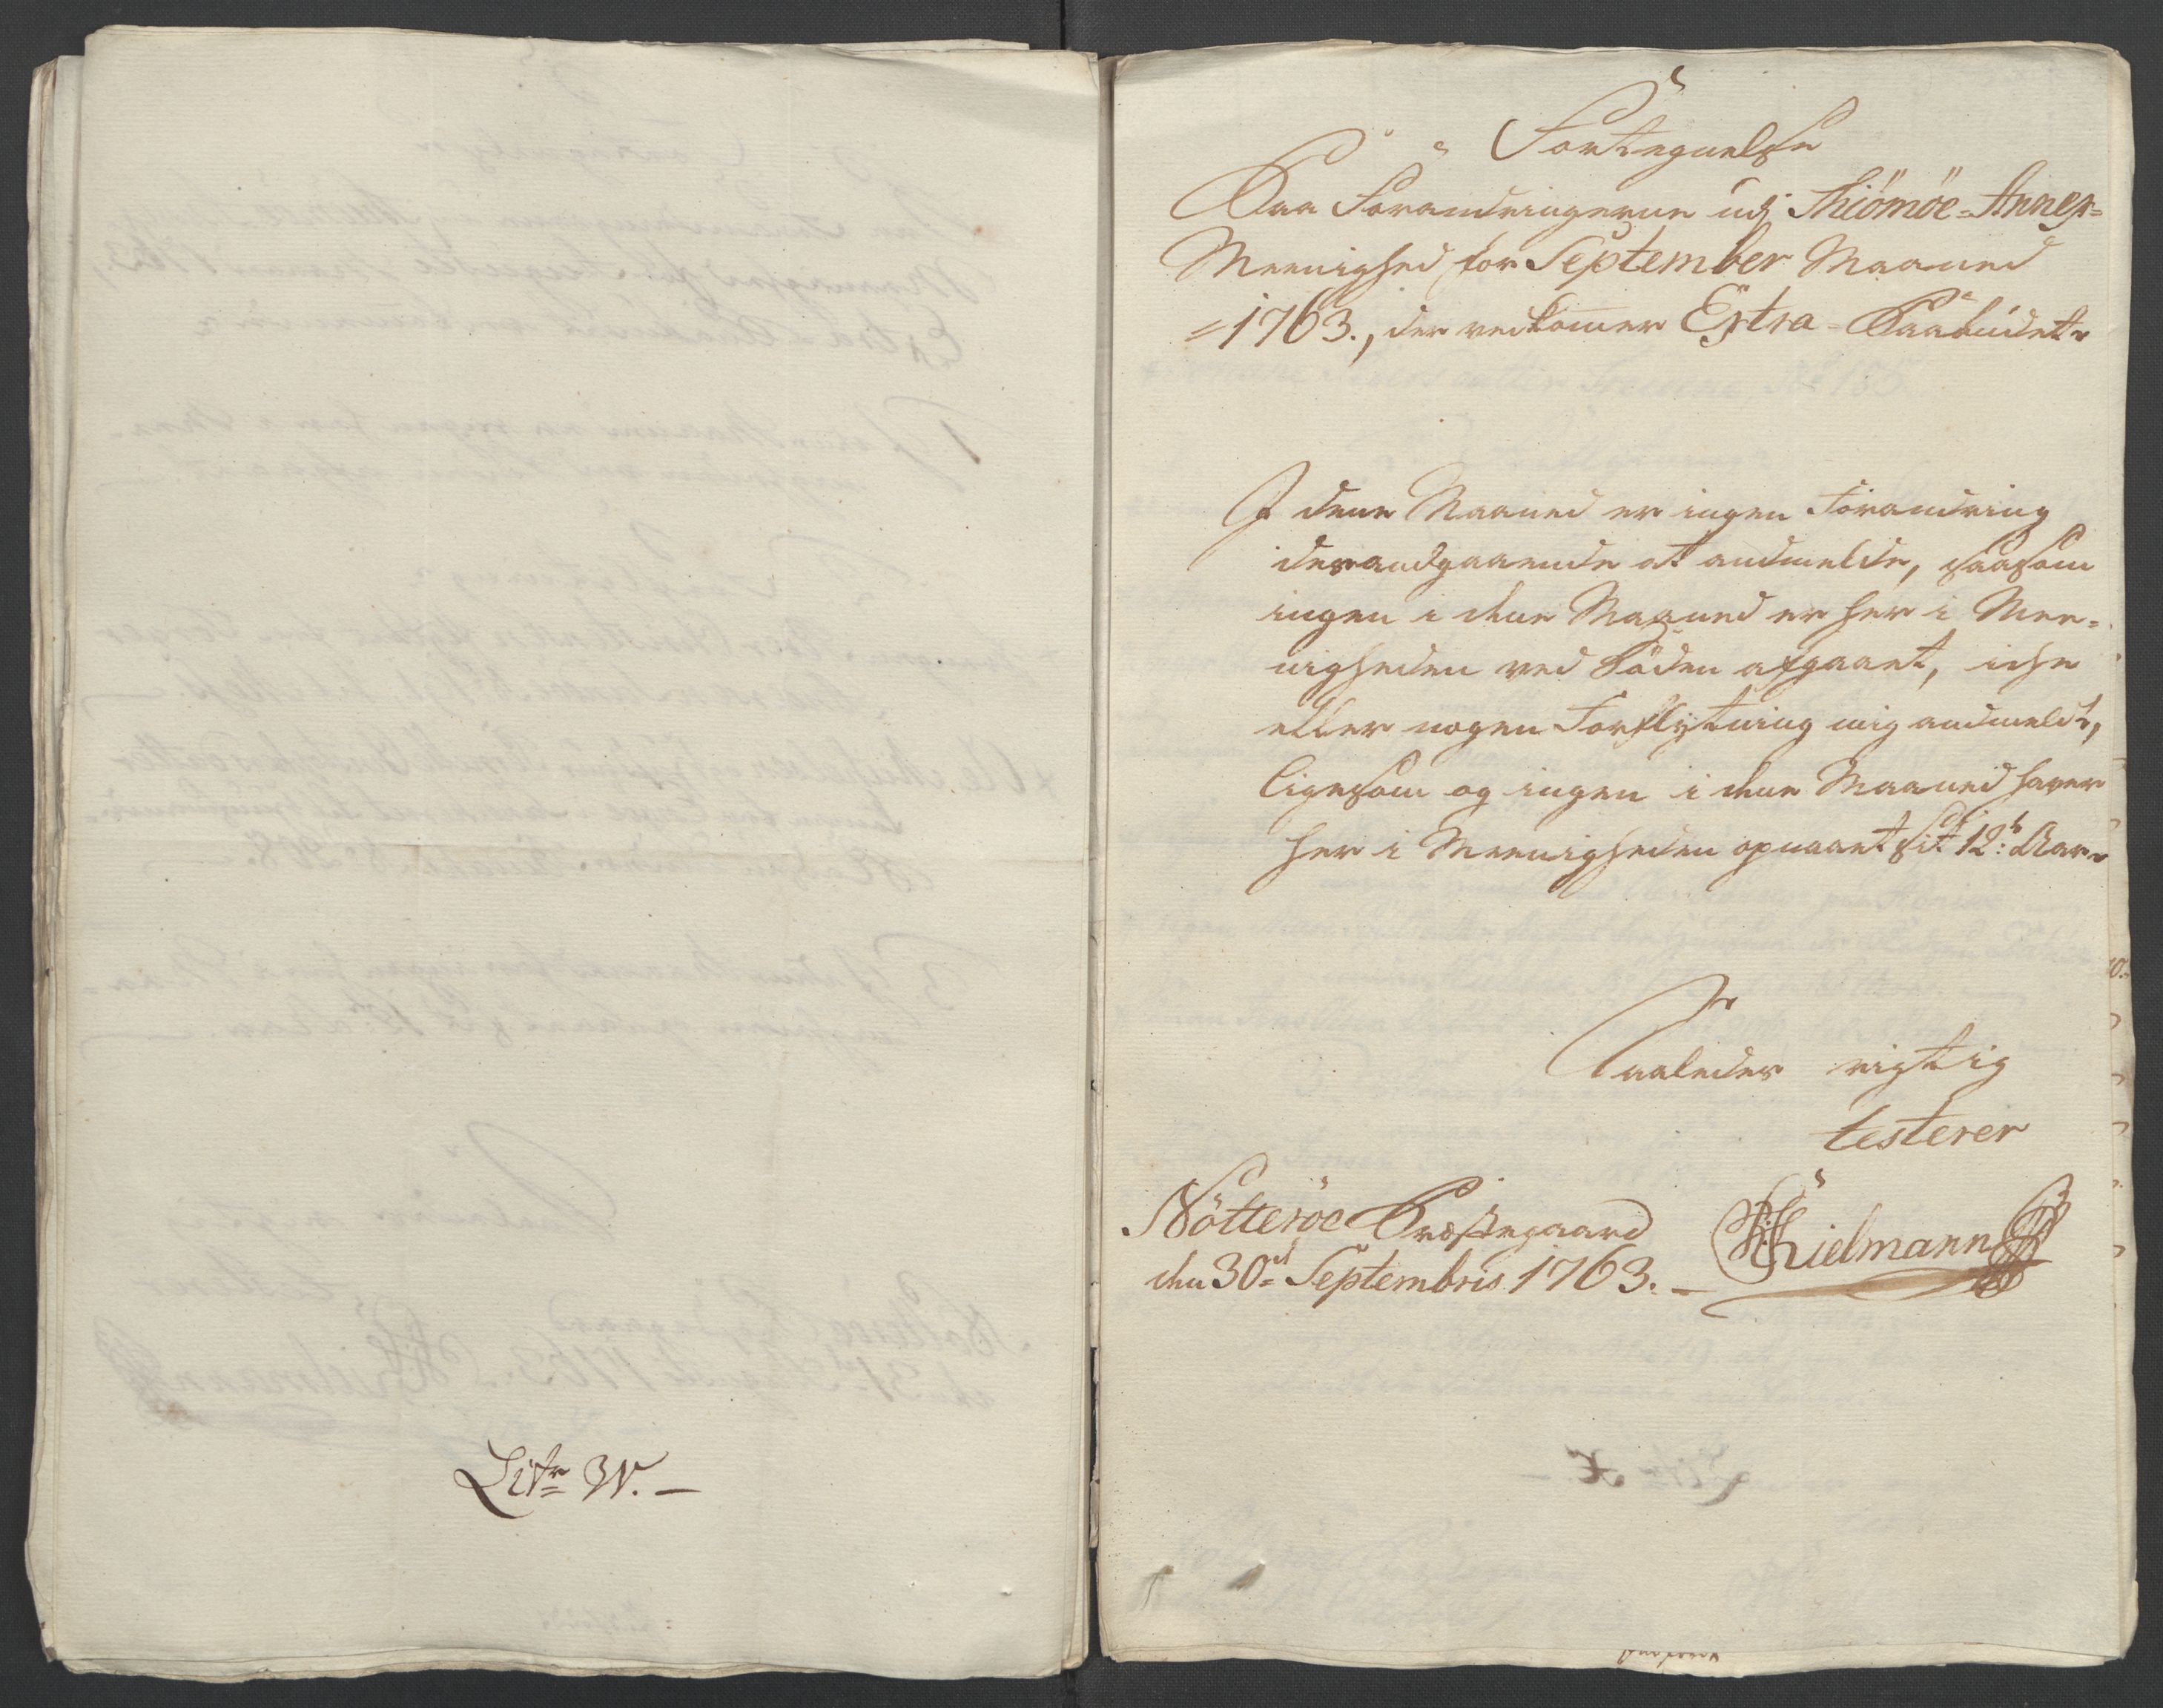 Litr W. –
Fortegnelse
Paa Forandringerne udj Thiömöe-Annex-
Meenighed for September Maaned
1763., der vedkommer Extra-Paabudet.
I denne Maaned er ingen Forandring
derandgaaende at andmelde, saasom
ingen i denne Maaned er her i Mee-
nigheden ved Döden afgaaet, icke
eller nogen Forflÿtning mig andmeldt,
ligesom og ingen i denne Maaned haver
her i Meenigheden opnaaet sit 12te Aar.
Saaledes rigtig
testerer
Nötteröe Præstegaard
den 30te Septembris 1763. –
Kielmann